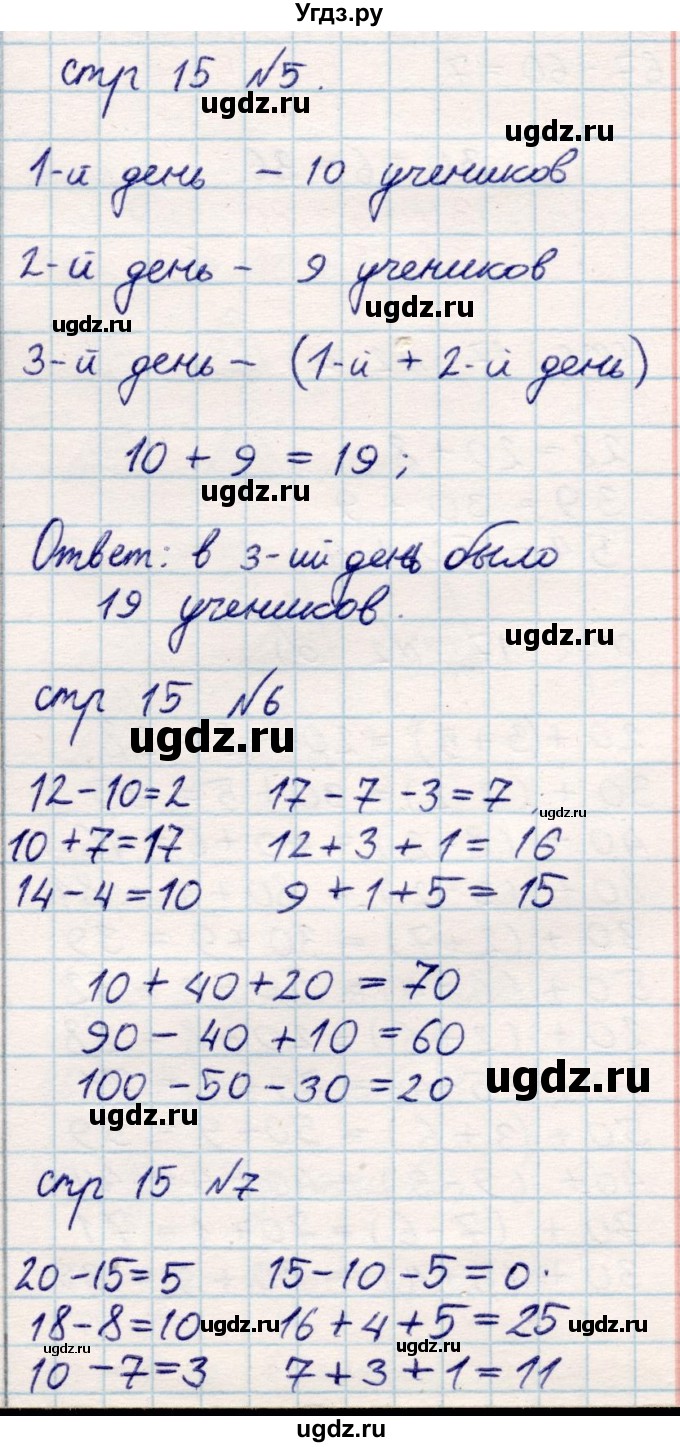 Угдз.ру
стр 15 №5.
ugdz.ru
ugdz.ru
1-й день - 10 учеников
2-й день - 9 учеников
ugdz.ru
ugdz.ru
3-й день - (1-й + 2-й день)
10 + 9 = 19;
ugdz.ru
Ответ: в 3-ий день было
19 учеников.
ugdz.ru
стр 15 №6
ugdz.ru
12-10=2 17-7-3=7
ugdz.ru
10+7=17 12+3+1=16
14-4=10 9+1+5=15
10+40+20=70
90-40+10=60
100-50-30=20
ugdz.ru
ugdz.ru
стр 15 №7
20-15=5 15-10-5=0.
18-8=10 16+4+5=25
ugdz.ru
ugdz.ru
ugdz.ru
ugdz.ru
10-7=3 7+3+1=11
ugdz.ru